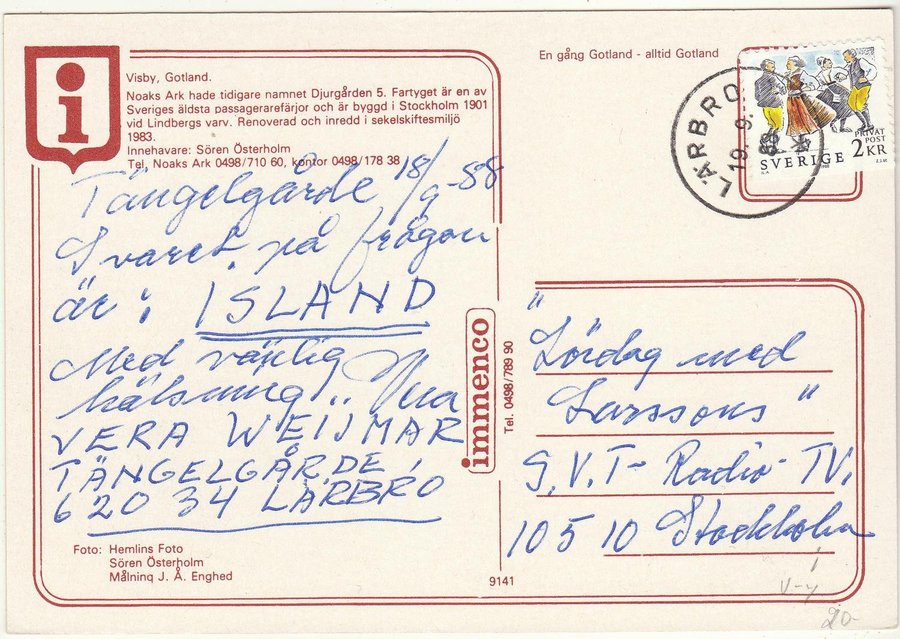 En gång Gotland - alltid Gotland
i
Visby, Gotland.
Noaks Ark hade tidigare namnet Djurgården 5. Fartyget är en av
Sveriges äldsta passagerarefärjor och är byggd i Stockholm 1901
vid Lindbergs varv. Renoverad och inredd i sekelskiftesmiljö
1983.
Innehavare: Sören Österholm
Tel, Noaks Ark 0498/710 60, kontor 0498/178 38
Tängelgårde 18/9-88
Svaret på frågan
är: ISLAND
Med vänlig
hälsning..
VERA WEIJMAR
TÄNGELGÅRDE,
620 34 LÄRBRO
Foto: Hemlins Foto
Sören Österholm
Målning J. Å. Enghed
immenco
Tel. 0498/789 90
9141
LÄRBRO
19. 9.
PRIVAT
POST
SVERIGE 2KR
"Lördag med
Larssons"
S.V.T- Radio-TV.
105 10 Stockholm
V-y
20-